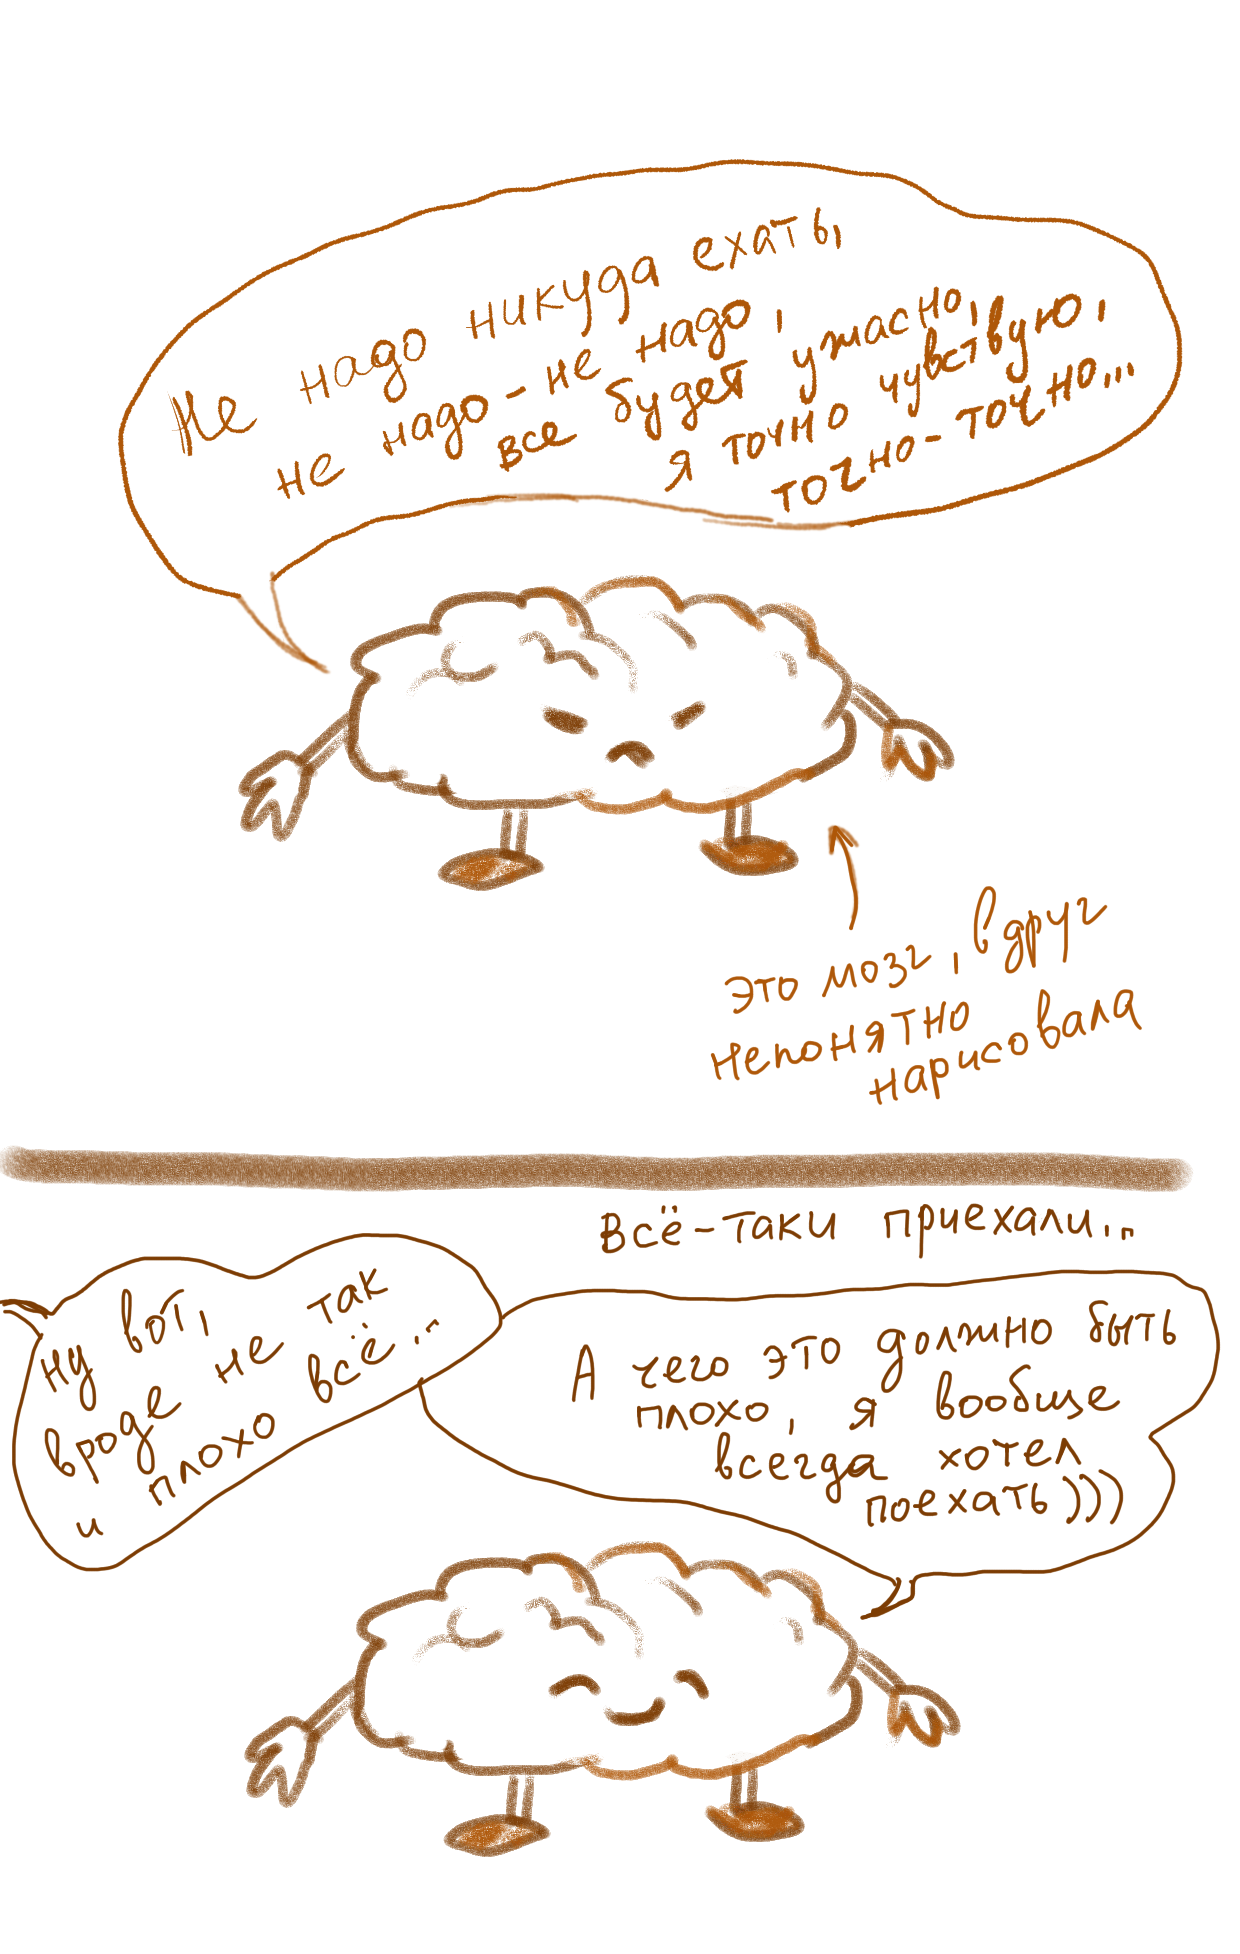 Не надо никуда ехать,
не надо-не надо,
все будет ужасно,
я точно чувствую,
точно-точно...
это мозг, вдруг
непонятно
нарисовала
Всё-таки приехали...
ну вот,
вроде не так
и плохо всё...
А чего это должно быть
плохо, я вообще
всегда хотел
поехать)))